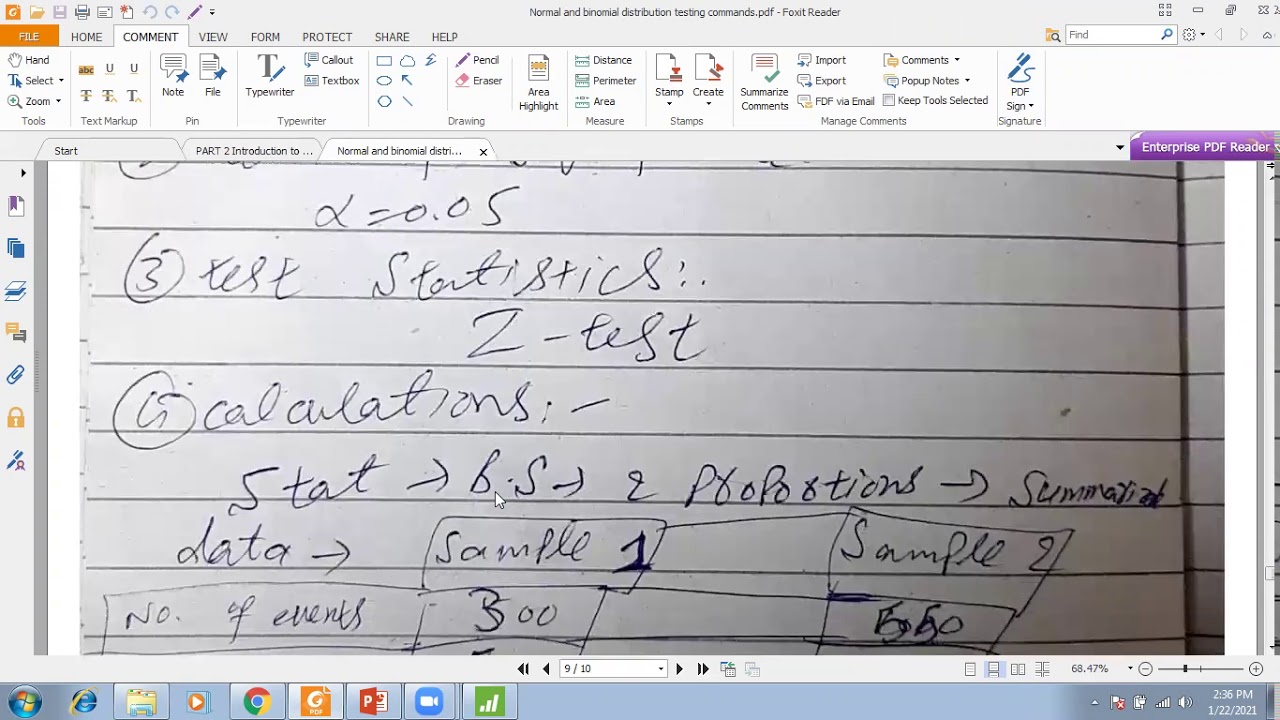 Normal and binomial distribution testing commands.pdf - Foxit Reader
FILE HOME COMMENT VIEW FORM PROTECT SHARE HELP Find
Hand Select Zoom Tools
Text Markup
Note File Pin
Typewriter Callout Textbox Typewriter
Pencil Eraser Drawing
Area Highlight Distance Perimeter Area Measure
Stamp Create Stamps
Summarize Comments Import Export FDF via Email Comments Popup Notes Keep Tools Selected Manage Comments
PDF Sign Signature
Start PART 2 Introduction to ... Normal and binomial distri... Enterprise PDF Reader
α=0.05
③ test Statistics:.
Z-test
calculations:-
Stat → B.S → 2 Proportions →
data → Sample 1 Sample 2
No. of events 300
9 / 10 68.47%
2:36 PM
1/22/2021